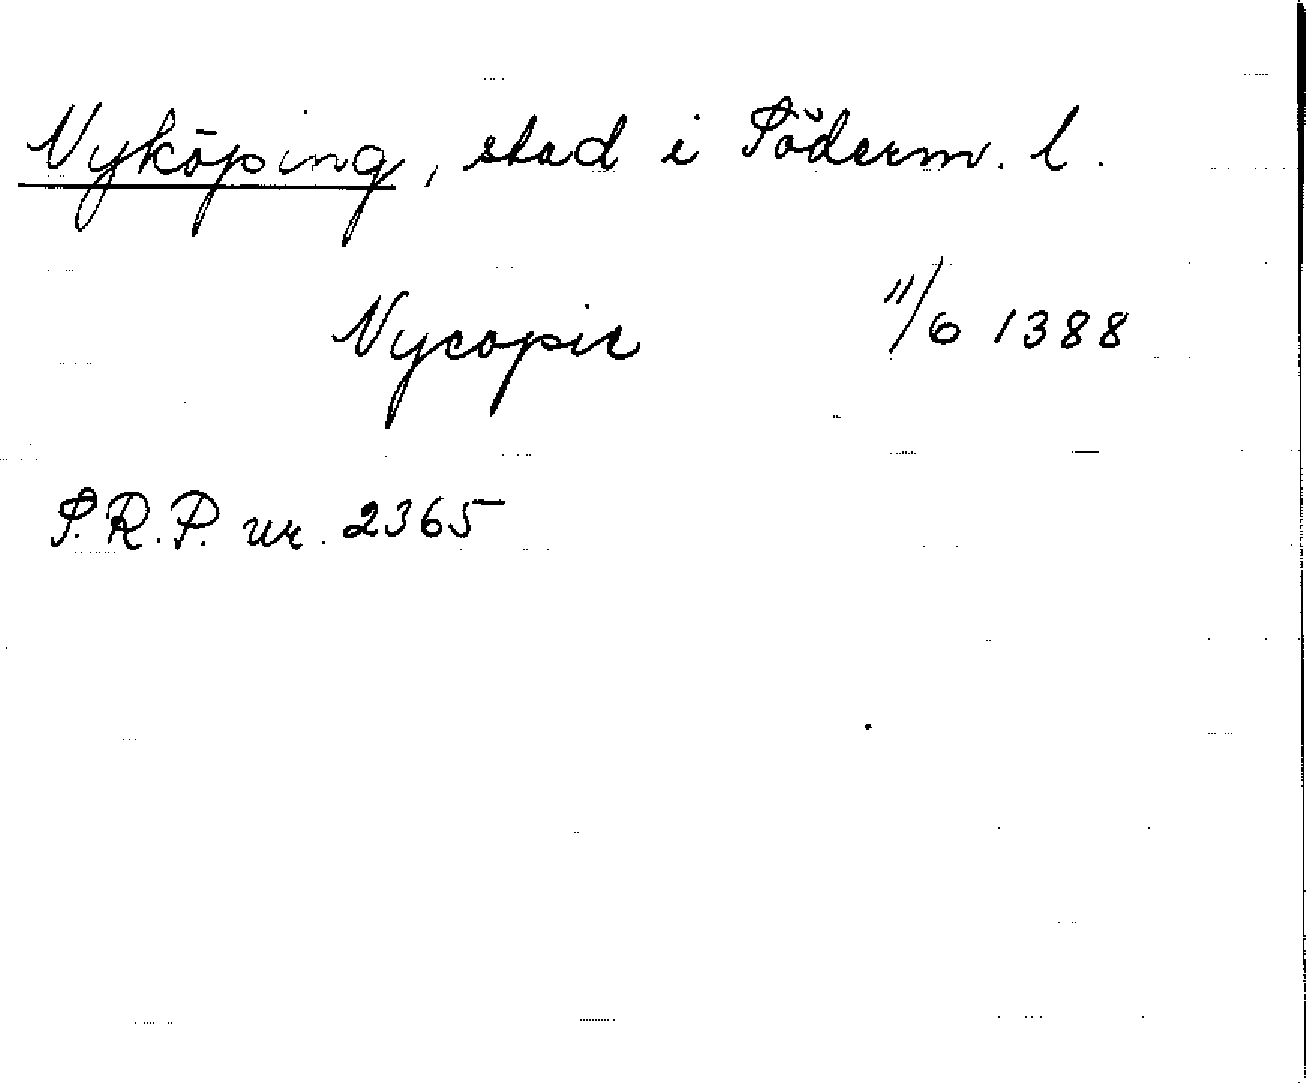 Nyköping, stad i Söderm. l.
Nycopie 11/6 1388
S.R.P. nr. 2365